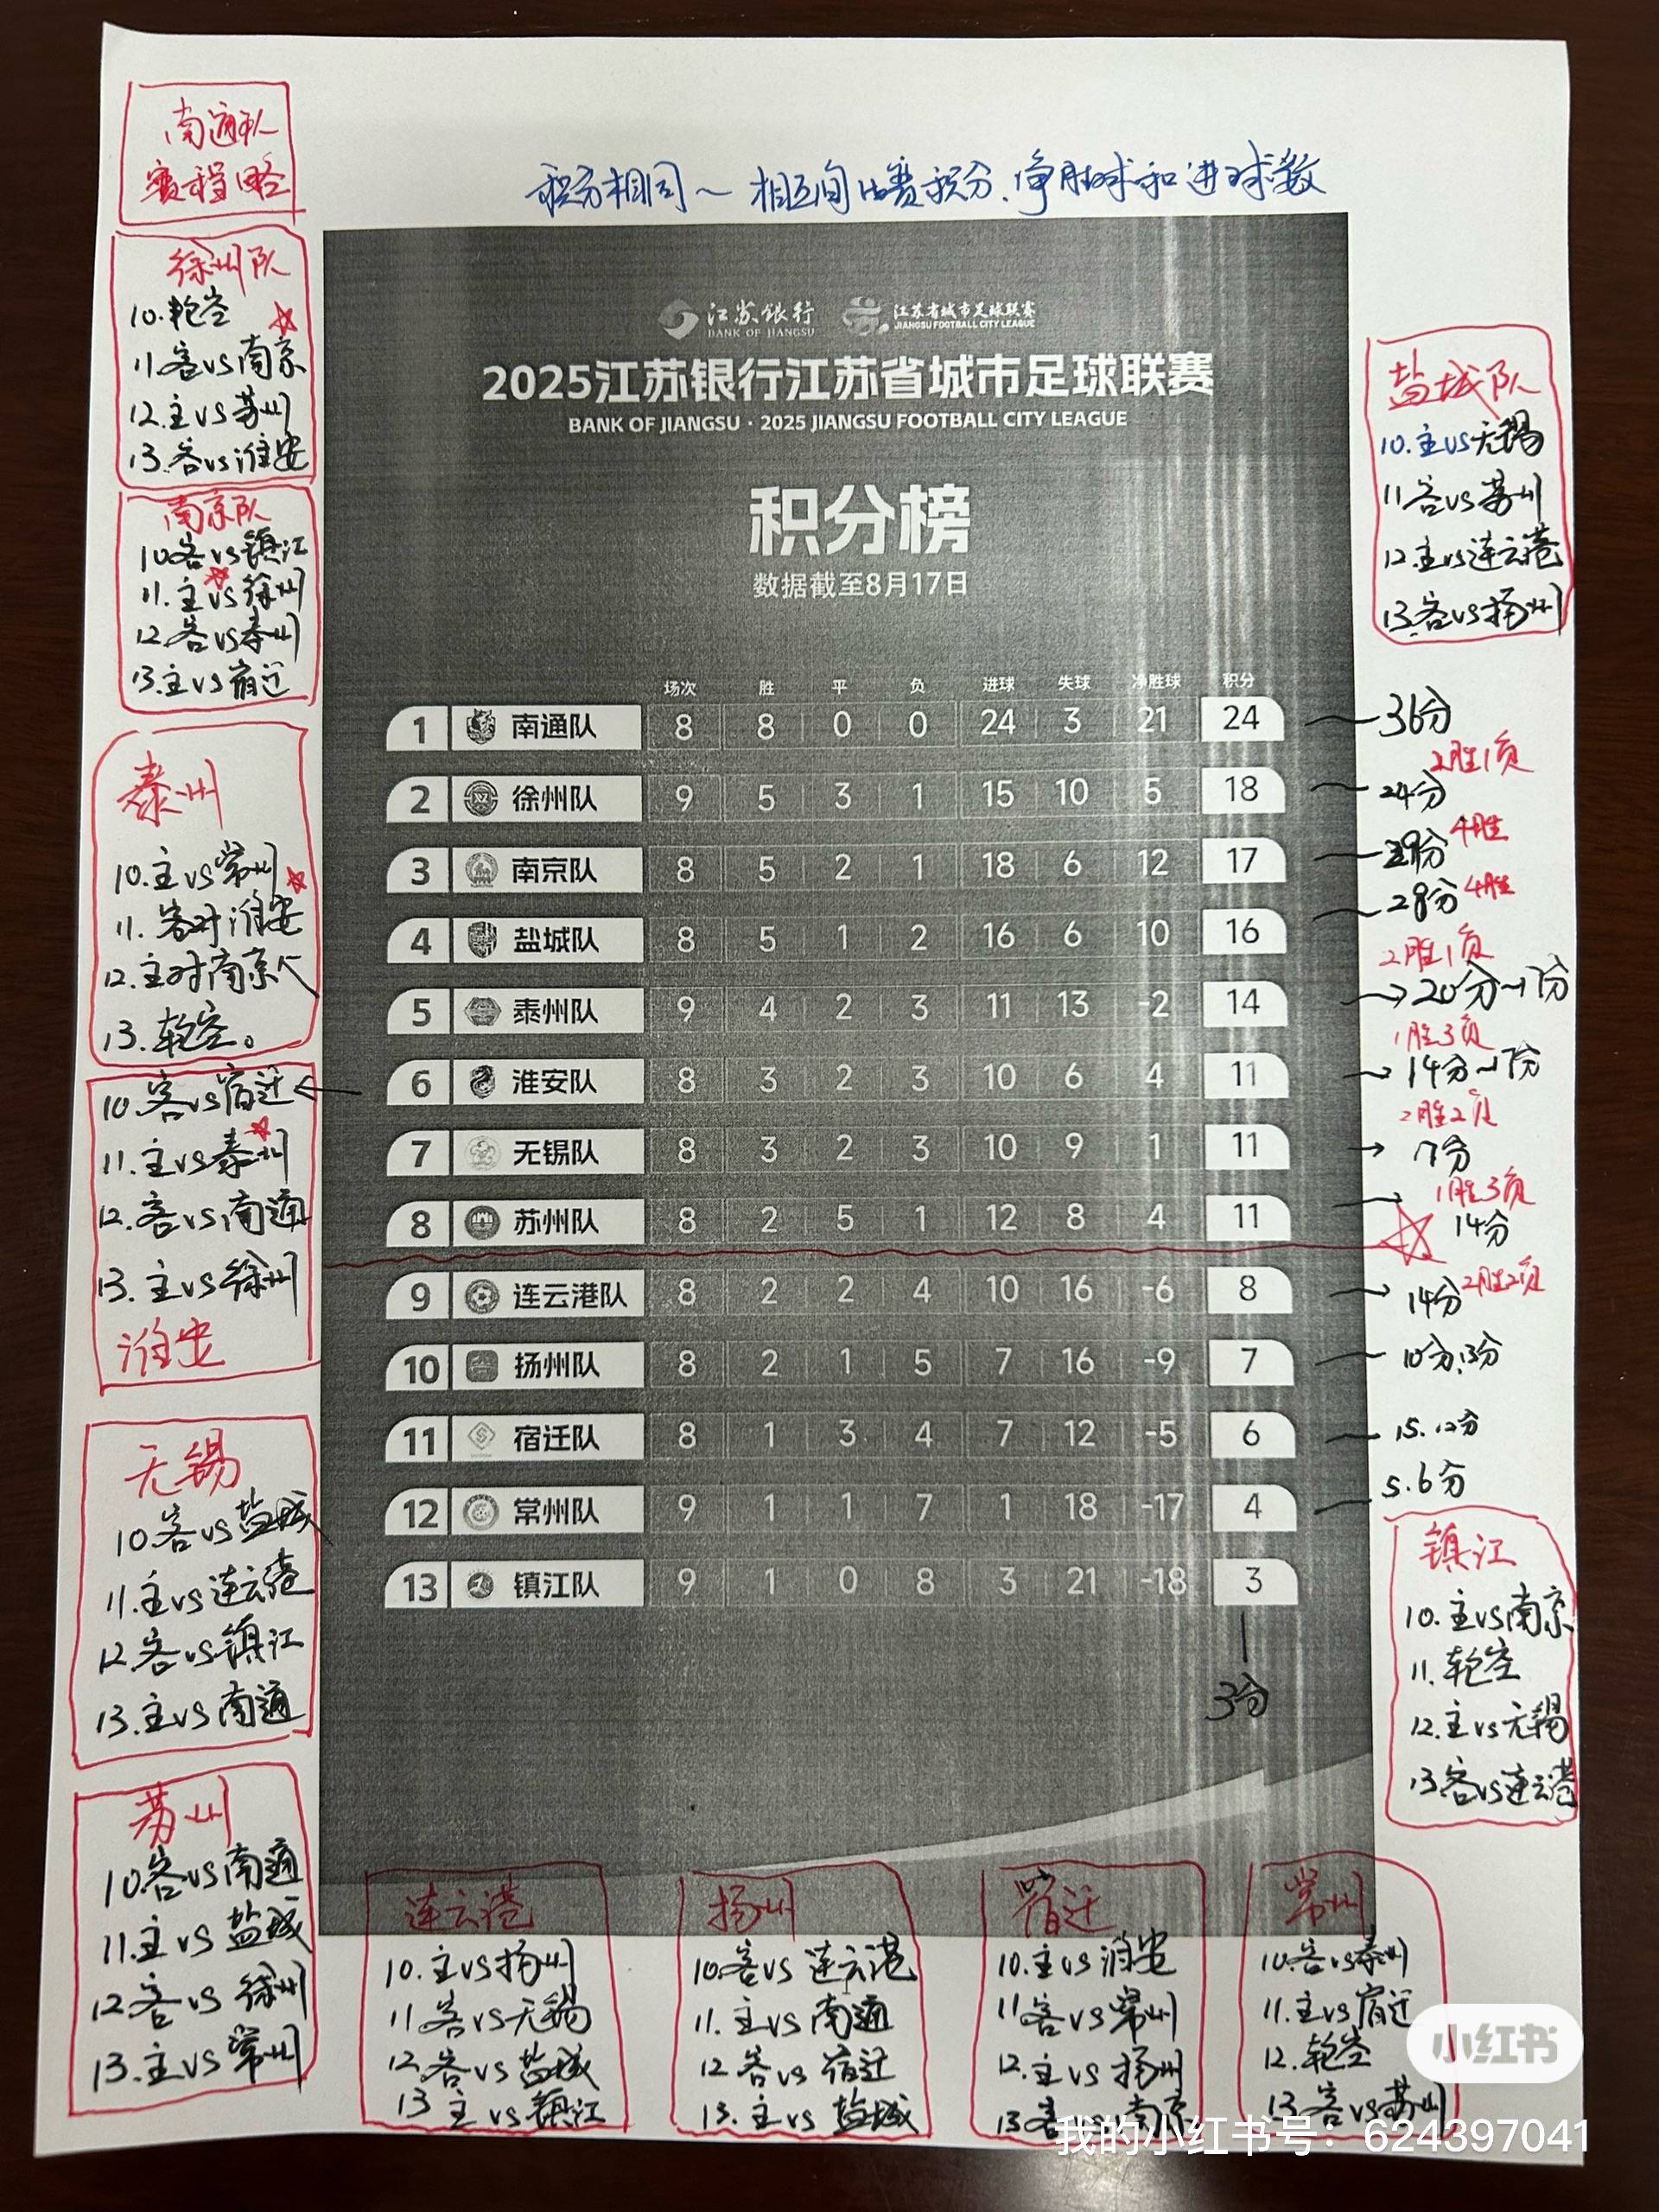 南通队
赛程略
积分相同~相互间比赛积分、净胜球和进球数
徐州队
10.轮空
11.客vs南京
12.主vs苏州
13.客vs淮安
南京队
10客vs镇江
11.主vs徐州
12.客vs泰州
13.主vs宿迁
泰州
10.主vs常州
11.客对淮安
12.主对南京
13.轮空。
10.客vs宿迁
11.主vs泰州
12.客vs南通
13.主vs徐州
淮安
无锡
10.客vs盐城
11.主vs连云港
12.客vs镇江
13.主vs南通
苏州
10.客vs南通
11.主vs盐城
12.客vs徐州
13.主vs常州
江苏银行 江苏省城市足球联赛
BANK OF JIANGSU JIANGSU FOOTBALL CITY LEAGUE
2025江苏银行江苏省城市足球联赛
BANK OF JIANGSU · 2025 JIANGSU FOOTBALL CITY LEAGUE
积分榜
数据截至8月17日
场次 胜 平 负 进球 失球 净胜球 积分
1 南通队 8 8 0 0 24 3 21 24
2 徐州队 9 5 3 1 15 10 5 18
3 南京队 8 5 2 1 18 6 12 17
4 盐城队 8 5 1 2 16 6 10 16
5 泰州队 9 4 2 3 11 13 -2 14
6 淮安队 8 3 2 3 10 6 4 11
7 无锡队 8 3 2 3 10 9 1 11
8 苏州队 8 2 5 1 12 8 4 11
9 连云港队 8 2 2 4 10 16 -6 8
10 扬州队 8 2 1 5 7 16 -9 7
11 宿迁队 8 1 3 4 7 12 -5 6
12 常州队 9 1 1 7 1 18 -17 4
13 镇江队 9 1 0 8 3 21 -18 3
3分
盐城队
10.主vs无锡
11客vs苏州
12.主vs连云港
13.客vs扬州
36分
2胜1负
24分
4胜
28分 4胜
2胜1负
20分~17分
1胜3负
14分~17分
2胜2负
17分
1胜3负
14分
14分 2胜2负
10分.13分
15.12分
5.6分
镇江
10.主vs南京
11.轮空
12.主vs无锡
13客vs连云港
连云港
10.主vs扬州
11客vs无锡
12.客vs盐城
13主vs镇江
扬州
10.客vs连云港
11.主vs南通
12客vs宿迁
13.主vs盐城
宿迁
10.主vs淮安
11客vs常州
12.主vs扬州
13客vs南京
常州
10.客vs泰州
11.主vs宿迁
12.轮空
13.客vs苏州
小红书
我的小红书号：624397041